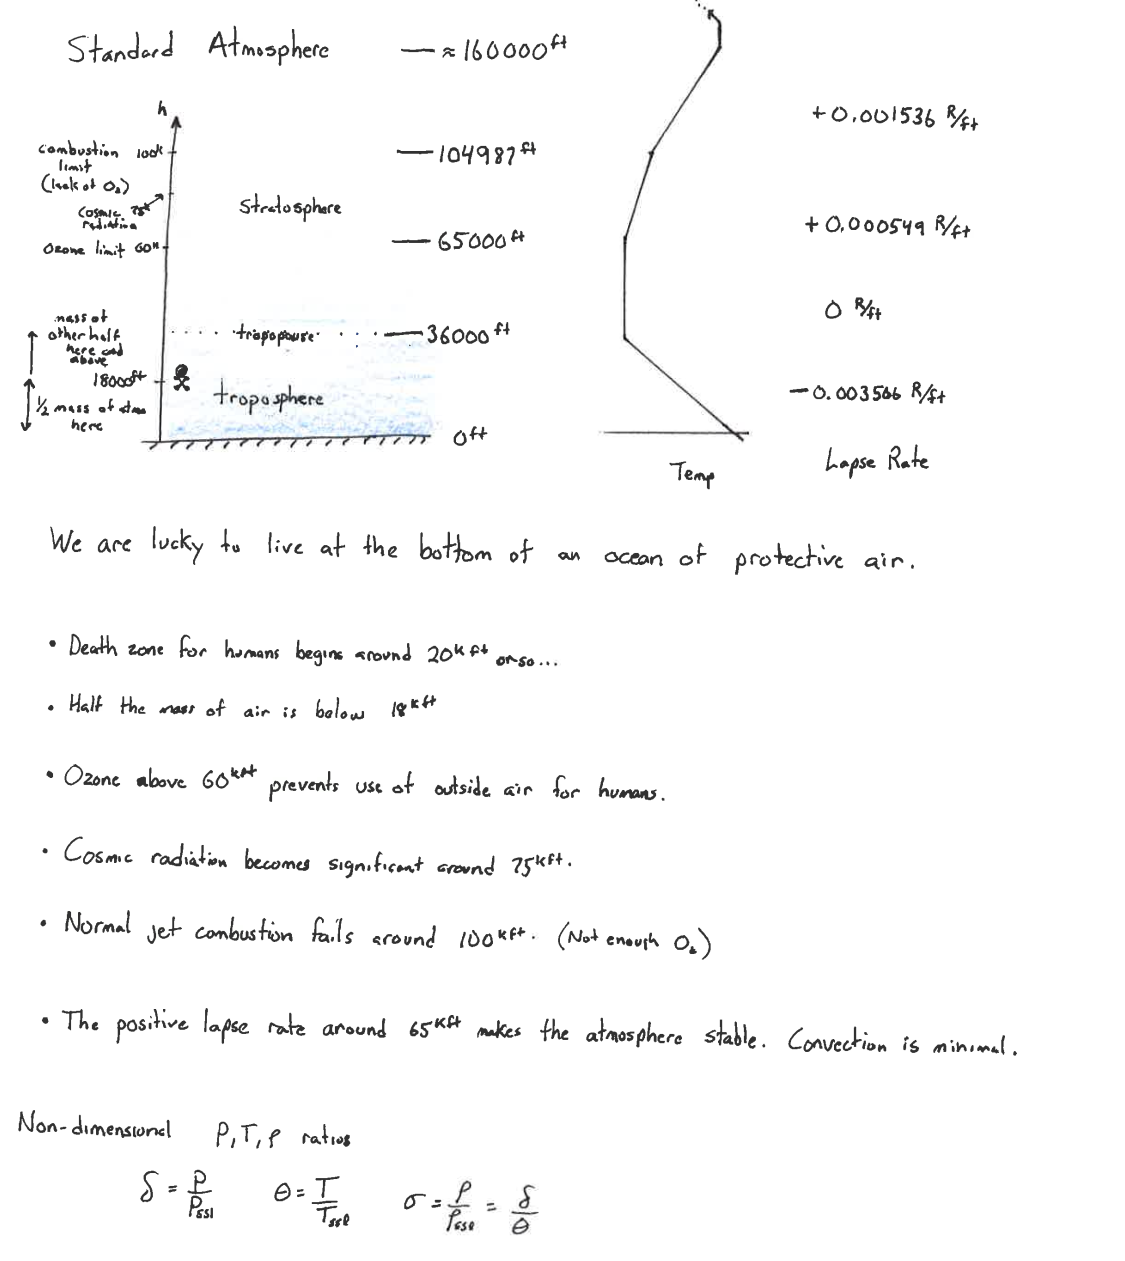 Standard Atmosphere
≈ 160000 ft
h
combustion 100k
limit
(lack of O₂)
cosmic 75k
radiation
Ozone limit 60k
mass of
other half
here and
above
18000ft
1/2 mass of atm
here
104987 ft
stratosphere
65000 ft
tropopause
36000 ft
troposphere
0 ft
+0.001536 R/ft
+0.000549 R/ft
0 R/ft
-0.003566 R/ft
Temp
Lapse Rate
We are lucky to live at the bottom of an ocean of protective air.
• Death zone for humans begins around 20k ft or so...
• Half the mass of air is below 18k ft
• Ozone above 60kft prevents use of outside air for humans.
• Cosmic radiation becomes significant around 75kft.
• Normal jet combustion fails around 100kft. (Not enough O₂)
• The positive lapse rate around 65kft makes the atmosphere stable. Convection is minimal.
Non-dimensional P, T, ρ ratios
δ = P/Pssl θ = T/Tssl σ = ρ/ρssl = δ/θ